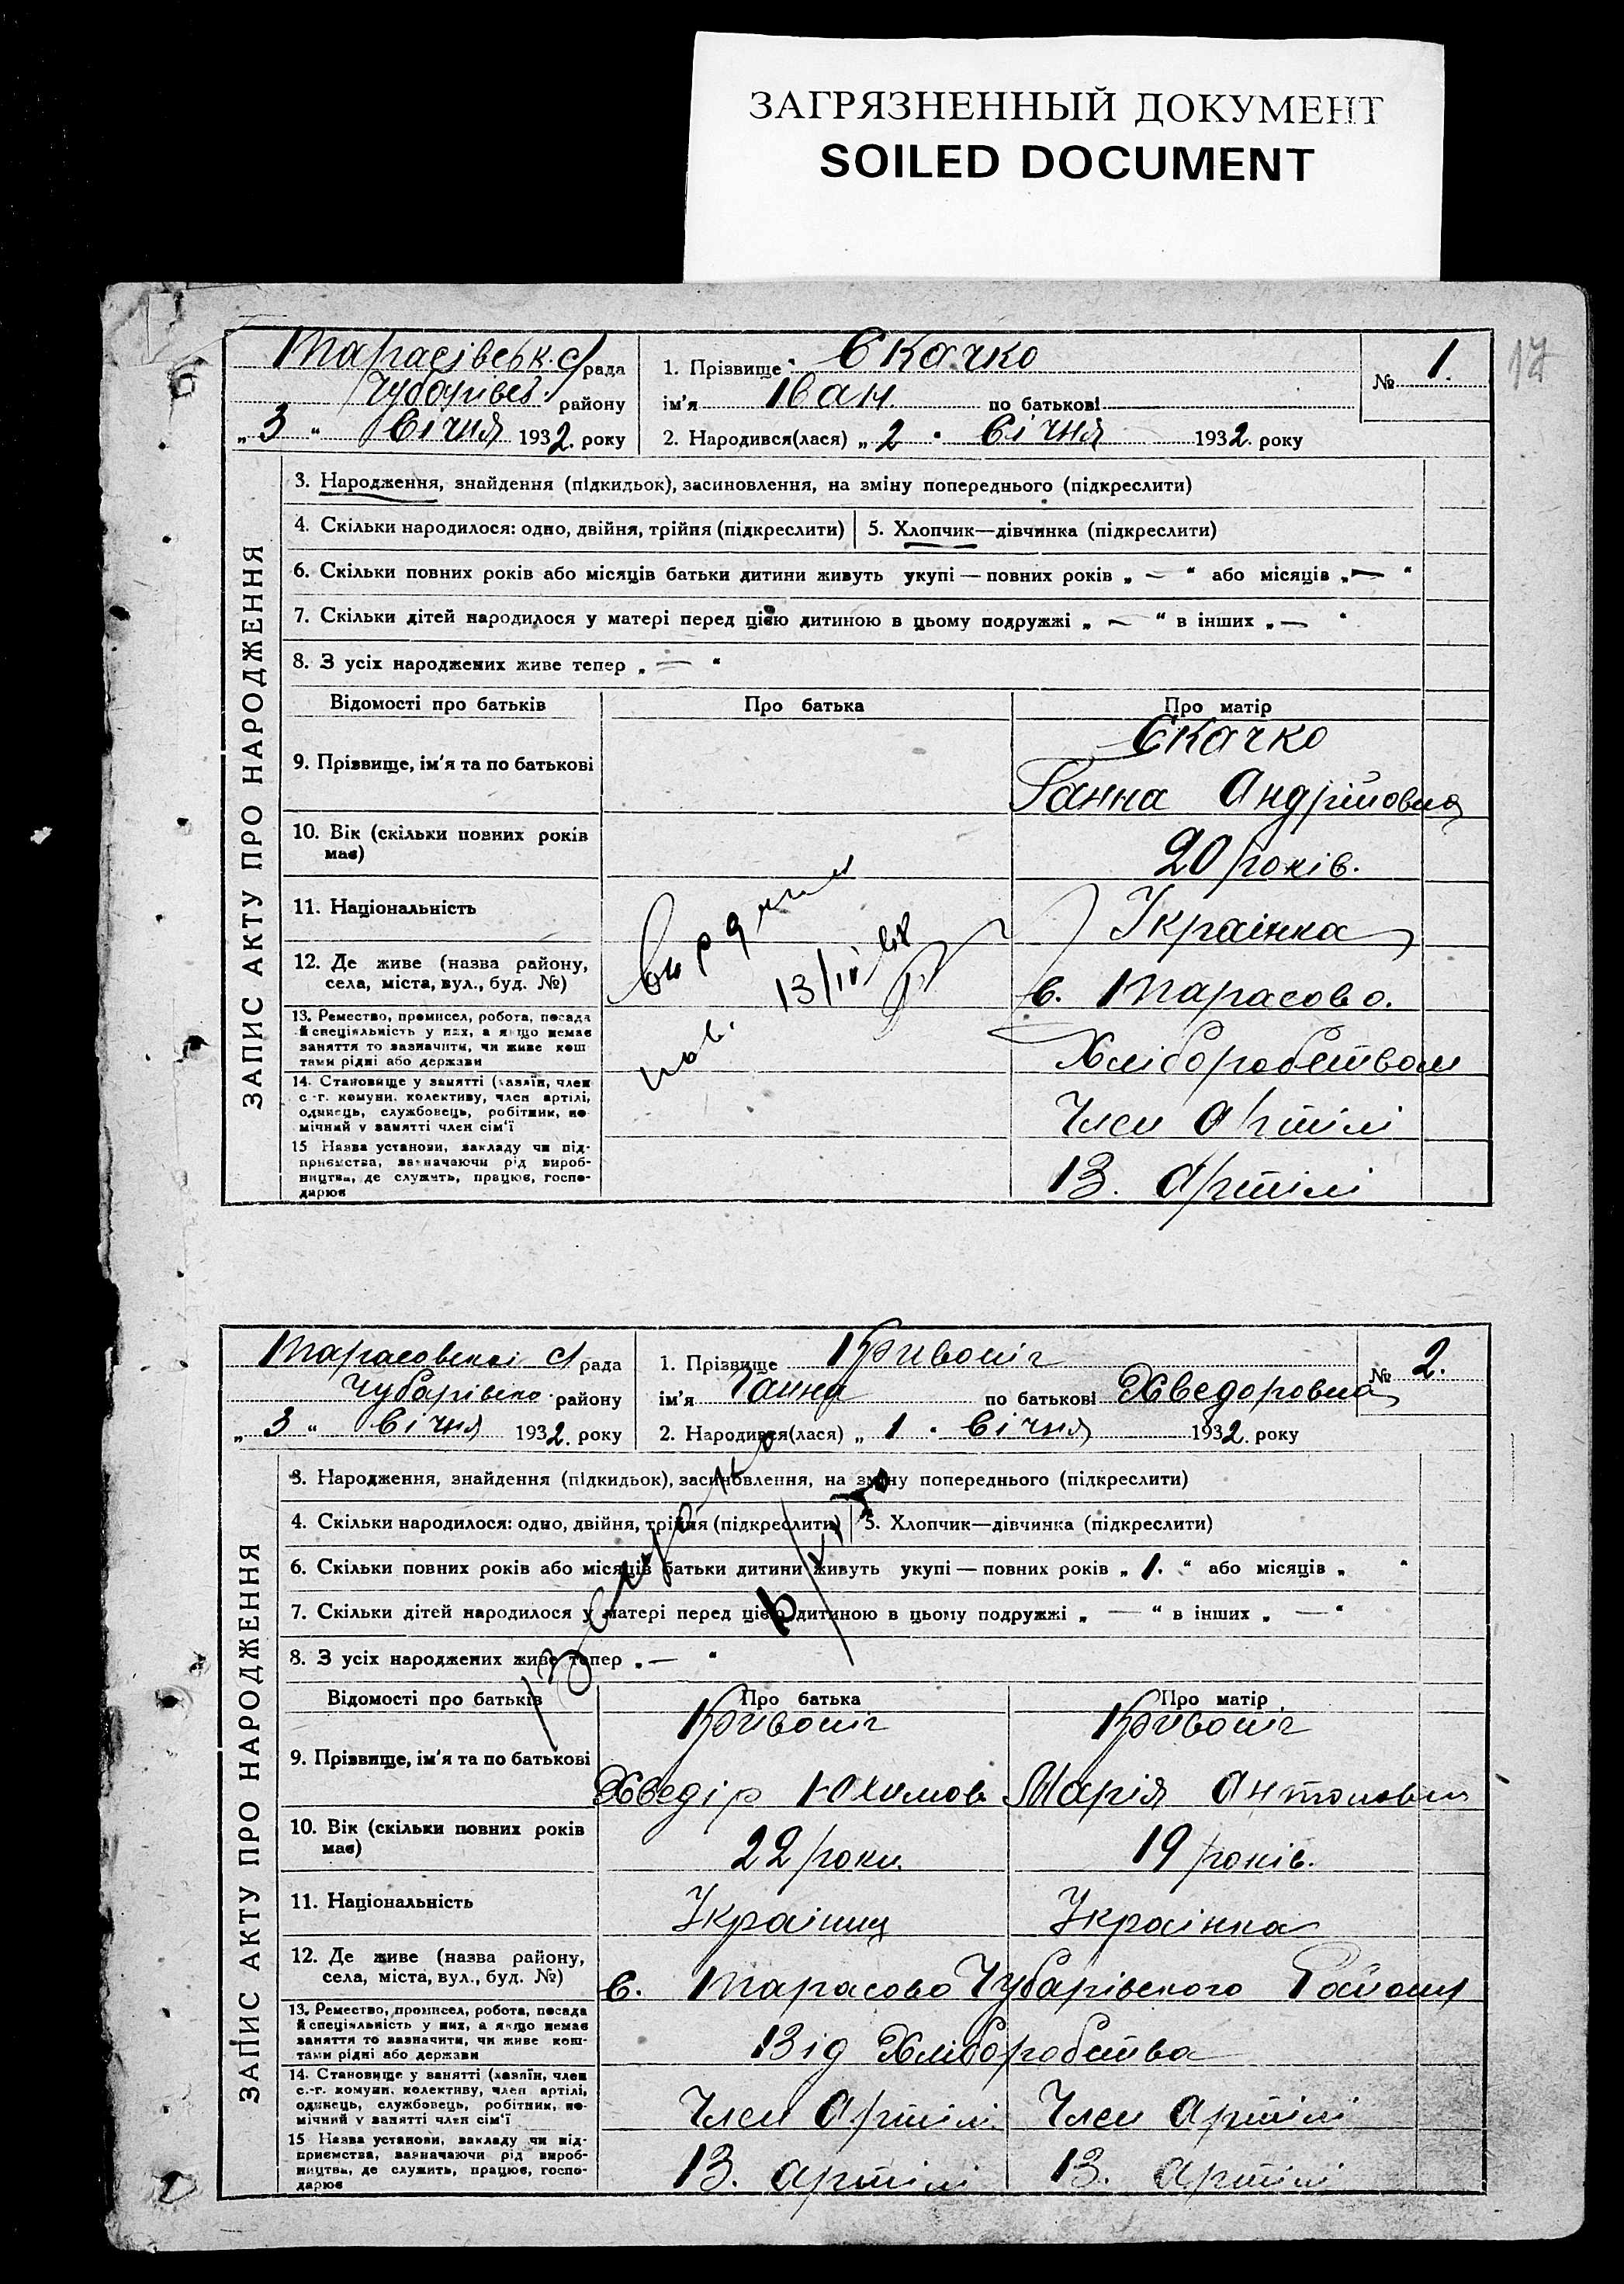 ЗАГРЯЗНЕННЫЙ ДОКУМЕНТ
SOILED DOCUMENT
17
Тарасівськ. с/рада
Чубарівсь. району
„ 3 “ Січня 1932. року
1. Прізвище Скачко
№ 1.
ім'я Іван. по батькові
2. Народився(лася) „ 2 " Січня 1932. року
ЗАПИС АКТУ ПРО НАРОДЖЕННЯ
3. Народження, знайдення (підкидьок), засиновлення, на зміну попереднього (підкреслити)
4. Скільки народилося: одно, двійня, трійня (підкреслити) 5. Хлопчик—дівчинка (підкреслити)
6. Скільки повних років або місяців батьки дитини живуть укупі — повних років „ — “ або місяців „ — “
7. Скільки дітей народилося у матері перед цією дитиною в цьому подружжі „ — “ в інших „ — “
8. З усіх народжених живе тепер „ — “
Відомості про батьків Про батька Про матір
9. Прізвище, ім'я та по батькові
Скачко
Ганна Андрійовна
10. Вік (скільки повних років має)
20 років.
11. Національність
Українка
12. Де живе (назва району, села, міста, вул., буд. №)
с. Тарасово.
13. Ремество, промисел, робота, посада й спеціяльність у них, а якщо немає заняття то зазначити, чи живе коштами рідні або держави
Хліборобством
14. Становище у занятті (хазяїн, член с.-г. комуни, колективу, член артілі, одинець, службовець, робітник, помічний у занятті член сім'ї
Член Артілі
15 Назва установи, закладу чи підприємства, зазначаючи рід виробництва, де служить, працює, господарює
В. Артілі
13/IV
Тарасовської с/рада
Чубарівсько району
„ 3 “ Січня 1932. року
1. Прізвище Кривоніг
№ 2.
ім'я Ганна по батькові Хведоровна
2. Народився(лася) „ 1 " Січня 1932. року
ЗАПИС АКТУ ПРО НАРОДЖЕННЯ
3. Народження, знайдення (підкидьок), засиновлення, на зміну попереднього (підкреслити)
4. Скільки народилося: одно, двійня, трійня (підкреслити) 5. Хлопчик—дівчинка (підкреслити)
6. Скільки повних років або місяців батьки дитини живуть укупі — повних років „ 1. “ або місяців „ “
7. Скільки дітей народилося у матері перед цією дитиною в цьому подружжі „ — “ в інших „ — “
8. З усіх народжених живе тепер „ — “
Відомості про батьків Про батька Про матір
9. Прізвище, ім'я та по батькові
Кривоніг Кривоніг
Хведір Юхимов Марія Антоновна
10. Вік (скільки повних років має)
22 роки. 19 років.
11. Національність
Українец Українка
12. Де живе (назва району, села, міста, вул., буд. №)
с. Тарасово Чубарівського Району
13. Ремество, промисел, робота, посада й спеціяльність у них, а якщо немає заняття то зазначити, чи живе коштами рідні або держави
Від Хліборобства
14. Становище у занятті (хазяїн, член с.-г. комуни, колективу, член артілі, одинець, службовець, робітник, помічний у занятті член сім'ї
Член Артілі. Член Артілі
15 Назва установи, закладу чи підприємства, зазначаючи рід виробництва, де служить, працює, господарює
В. Артілі В. Артілі